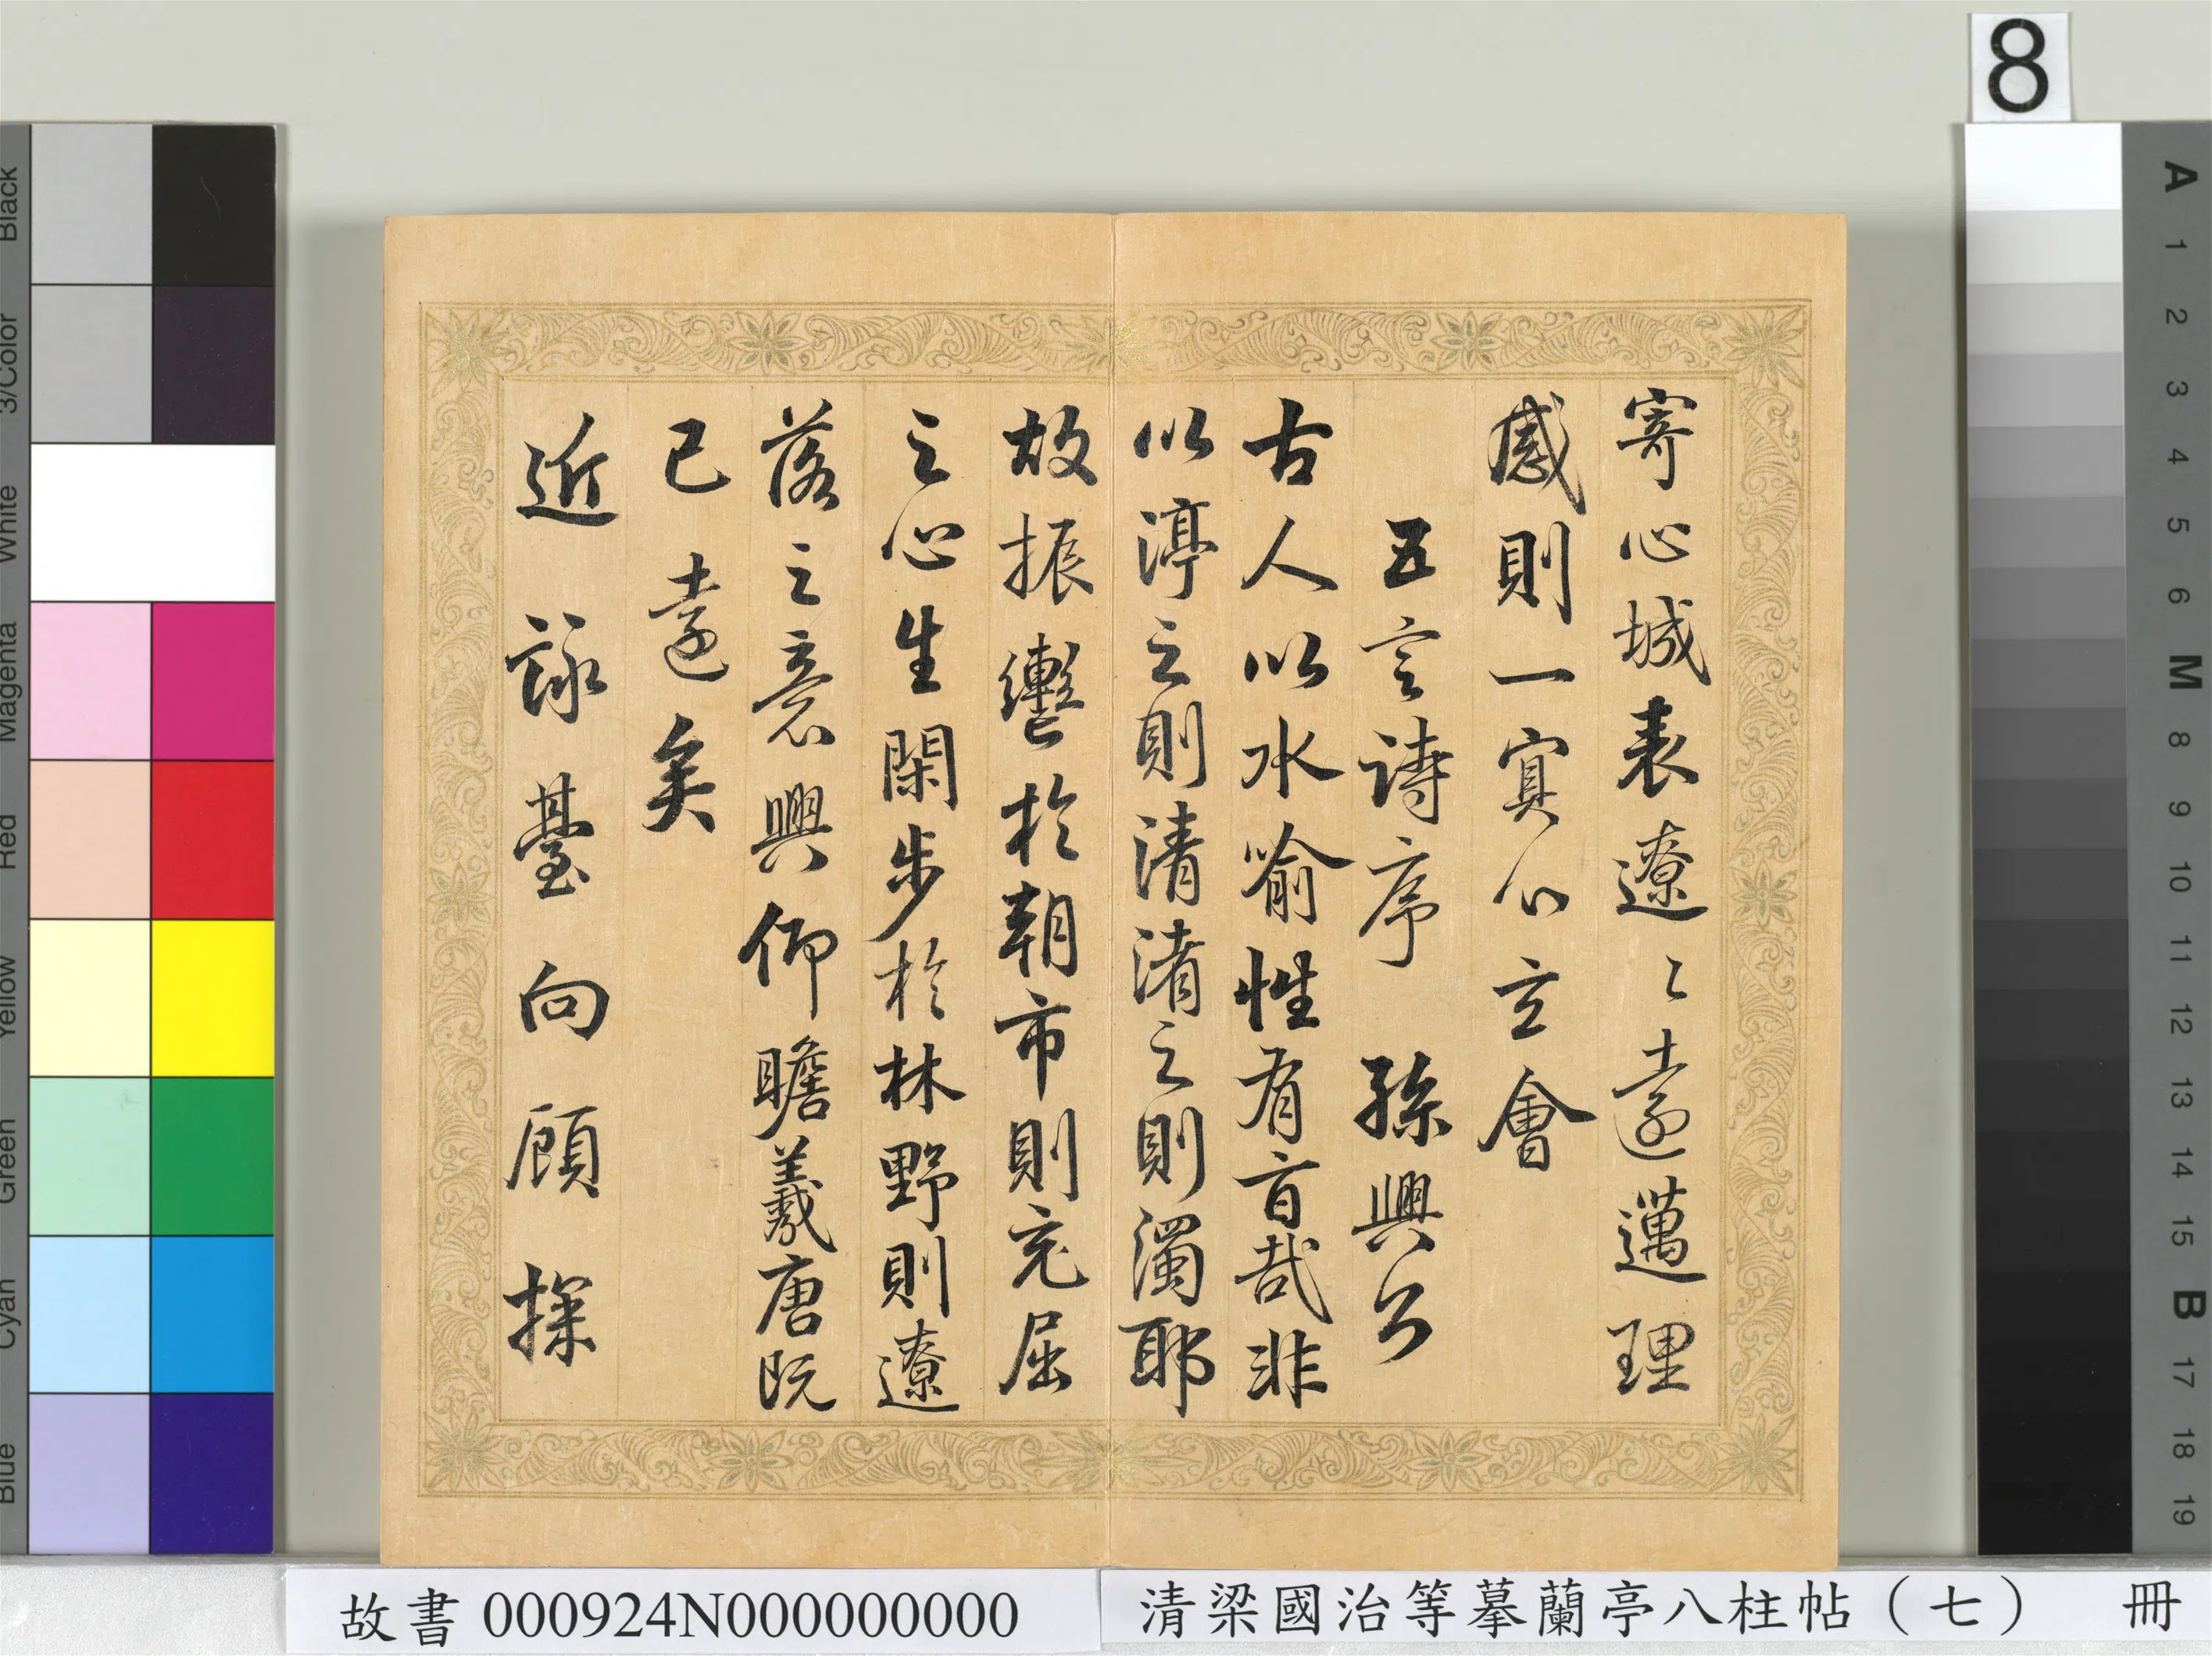 8
寄心城表遼〻遠邁理
感則一寘心立會
五言詩序 孫興公
古人以水喻性有盲哉非
以渟之則清渚之則濁耶
故振轡於朝市則充屈
之心生閑步於林野則遼
落之意興仰瞻羲唐既
已遠矣
近詠臺向顧探
故書 000924N000000000
清梁國治等摹蘭亭八柱帖(七) 冊
Black
3/Color
White
Magenta
Red
Yellow
Green
Cyan
Blue
A
1
2
3
4
5
6
M
8
9
10
11
12
13
14
15
B
17
18
19